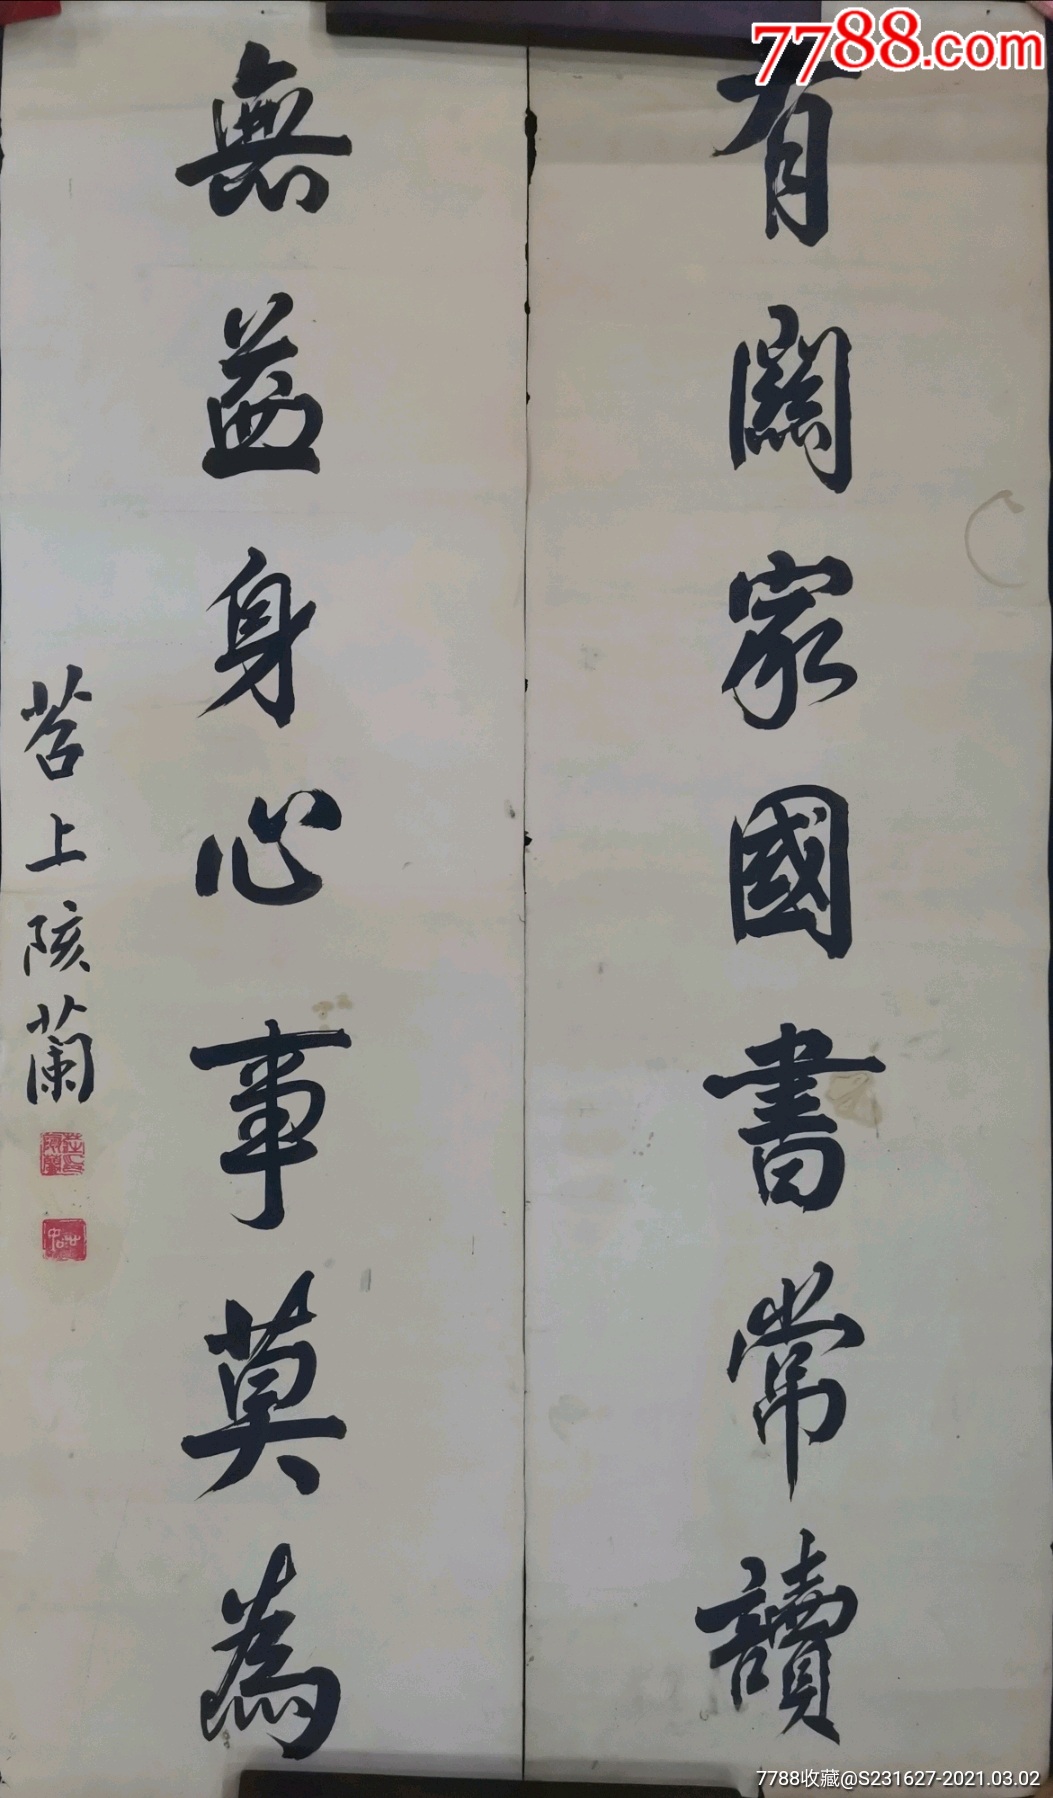 7788.com
有關家國書常讀
無益身心事莫為
苕上陔蘭
7788收藏@S231627-2021.03.02